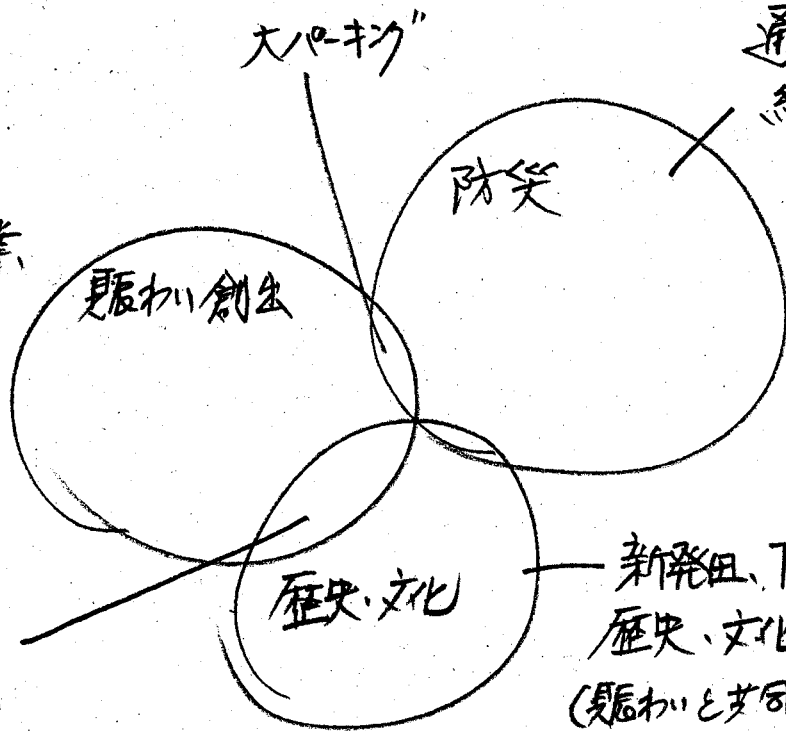 大パーキング
防災
賑わい創出
歴史・文化
新発田、
歴史、文化
(賑わいと共同